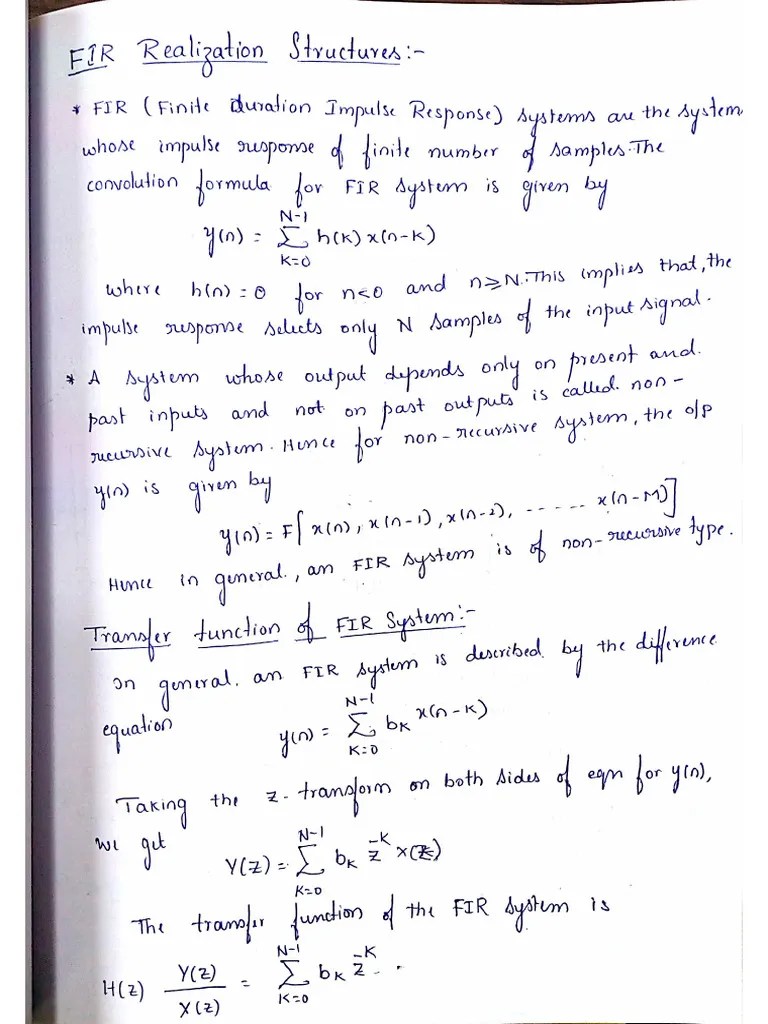 FIR Realization Structures:-
* FIR (Finite Duration Impulse Response) systems are the system
whose impulse response of finite number of samples. The
convolution formula for FIR system is given by
y(n) = \sum_{K=0}^{N-1} h(K) x(n-K)
where h(n) = 0 for n<0 and n≥N. This implies that, the
impulse response selects only N samples of the input signal.
* A system whose output depends only on present and
past inputs and not on past outputs is called non-
recursive system. Hence for non-recursive system, the o/p
y(n) is given by
y(n) = F[x(n), x(n-1), x(n-2), ------ x(n-M)]
Hence in general, an FIR system is of non-recursive type.
Transfer function of FIR System:-
In general. an FIR system is described by the difference
equation y(n) = \sum_{K=0}^{N-1} b_K x(n-K)
Taking the z-transform on both sides of eqn for y(n),
we get Y(z) = \sum_{K=0}^{N-1} b_K z^{-K} X(z)
The transfer function of the FIR system is
H(z) \frac{Y(z)}{X(z)} = \sum_{K=0}^{N-1} b_K z^{-K}.